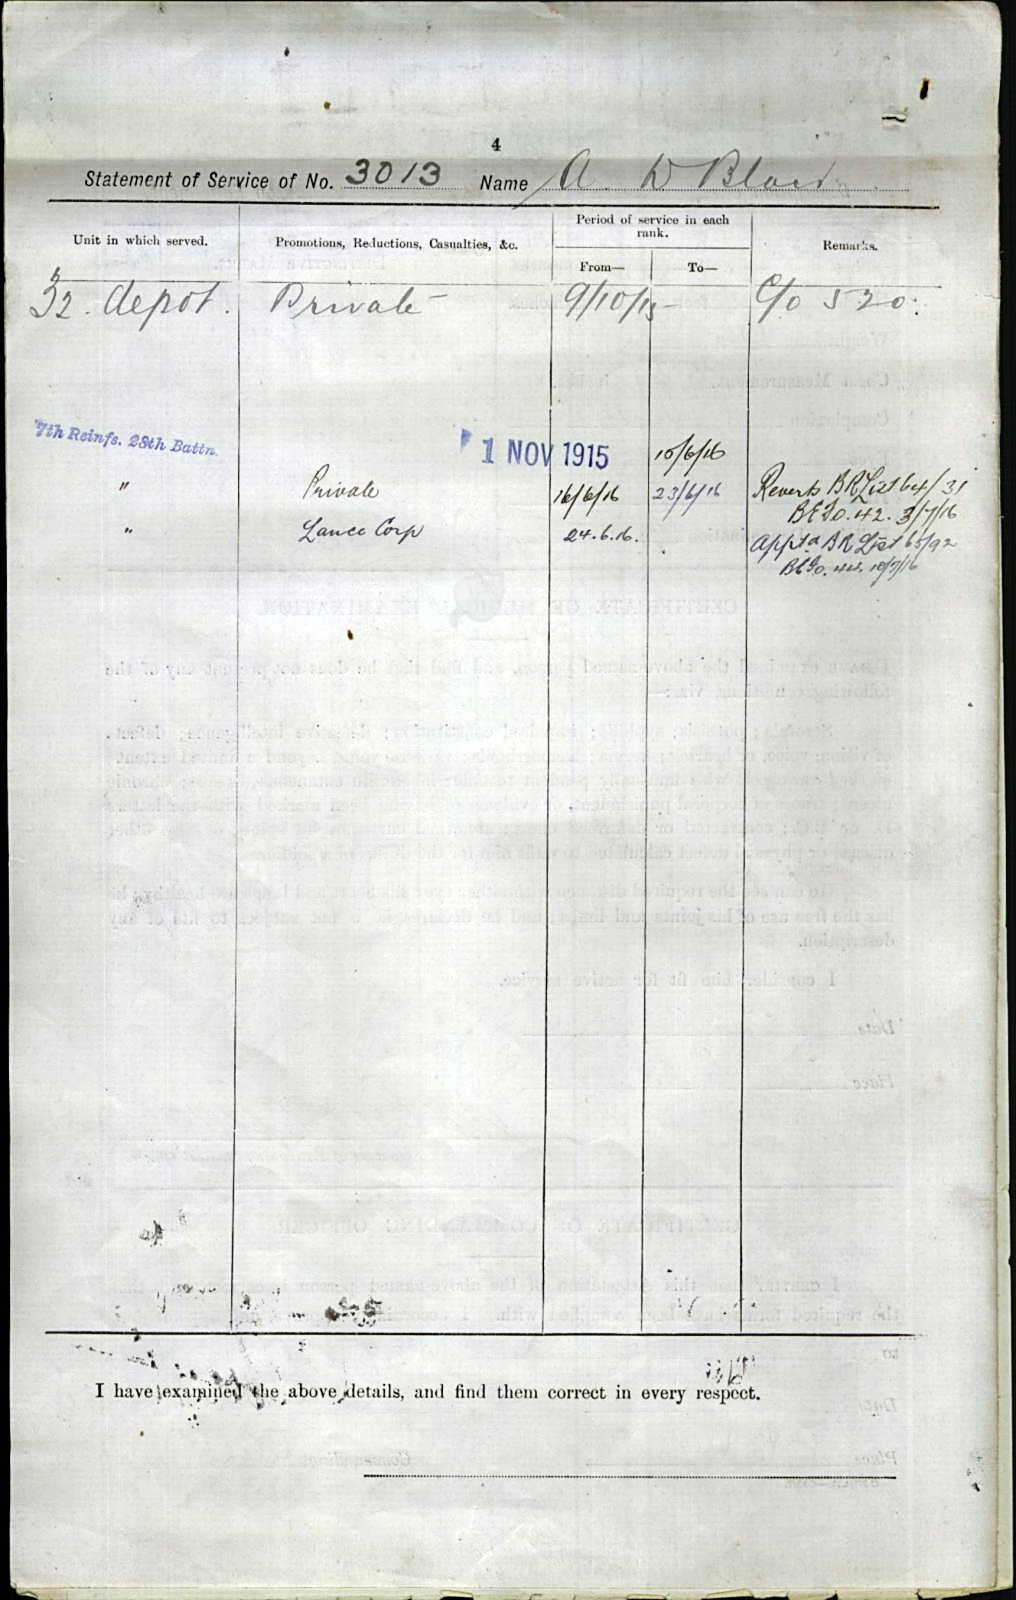 4
Statement of Service of No. 3013 Name A. W Blair
Unit in which served.
Promotions, Reductions, Casualties, &c.
Period of service in each rank.
From—
To—
Remarks.
32. depot. Private — 9/10/15 — C/o 520.
7th Reinfs. 28th Battn. 1 NOV 1915 15/6/16
" Private 16/6/16 23/6/16 Reverts BR List 64/31
BEFO. 42. 3/7/16
" Lance Corp 24.6.16. Appt'd BR List 65/92
BEFO. 44. 10/7/16
I have examined the above details, and find them correct in every respect.